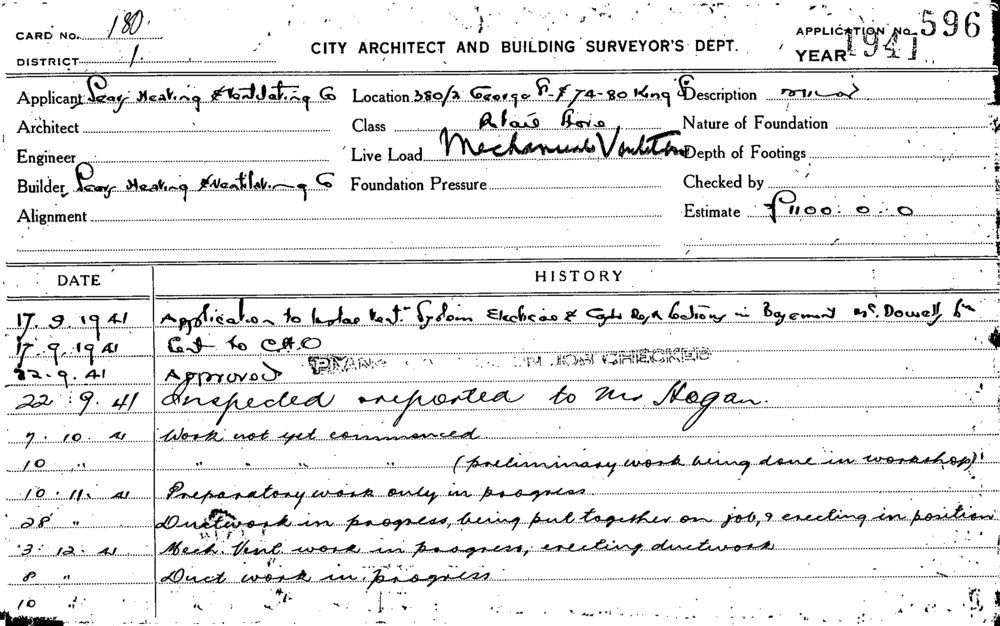 CARD No. 180.
DISTRICT 1.
CITY ARCHITECT AND BUILDING SURVEYOR'S DEPT.
APPLICATION No. 596
YEAR 1941
Applicant Heating & Ventilating Co
Location 380/2 George St & 74-80 King St
Description
Architect
Class Store
Nature of Foundation
Engineer
Live Load Mechanical
Depth of Footings
Builder Heating & Ventilating Co
Foundation Pressure
Checked by
Alignment
Estimate £1100. 0. 0
DATE
HISTORY
17. 9. 1941 Application to Vent. System in Basement McDowells
17. 9. 1941 to
22. 9. 41 Approved PLANS JOB CHECKED
22. 9. 41 Inspected & reported to Mr Hogan.
7. 10. 41 Work not yet commenced
10 " " " " " (preliminary work being done in workshop)
10. 11. 41 Preparatory work only in progress
28 " Ductwork in progress, being put together on job, & erecting in position
3. 12. 41 Mech. Vent work in progress, erecting ductwork
8 " Duct work in progress
10 "